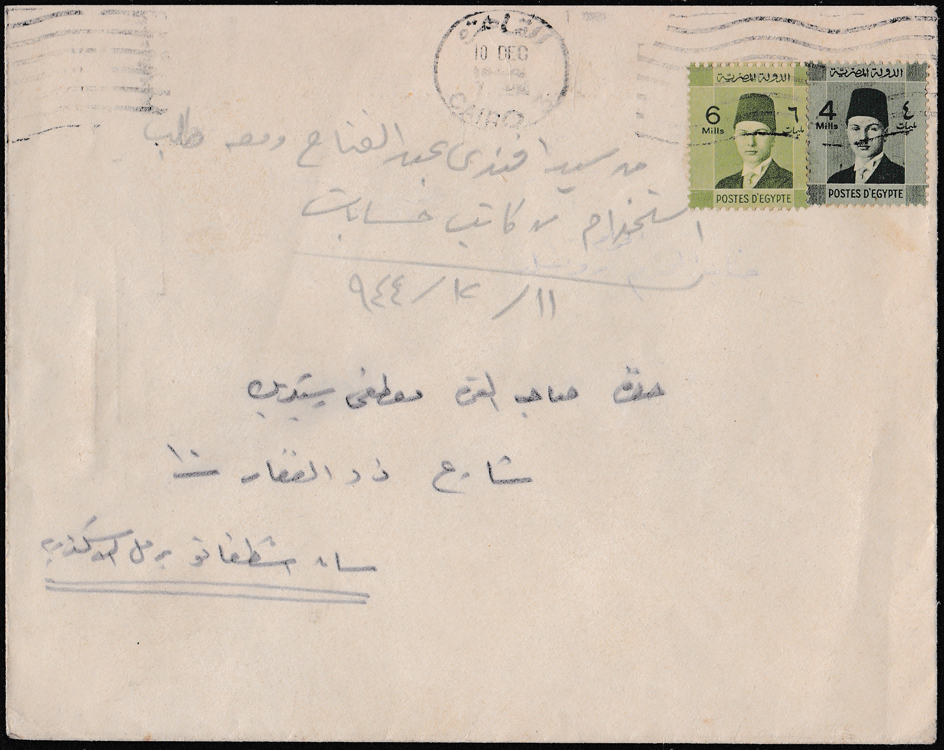 القاهرة
10 DEC
CAIRO
الدولة المصرية
6 ٦
Mills مليمات
POSTES D'EGYPTE
الدولة المصرية
4 ٤
Mills مليمات
POSTES D'EGYPTE
من سيد افندى عبد الفتاح ومعه طلب
استخدام من كاتب حسابات
١١/١٢/٩٤٤
حضرة صاحب العزة مصطفى
شارع ذو الفقار
سان اسطفانو برمل الاسكندرية